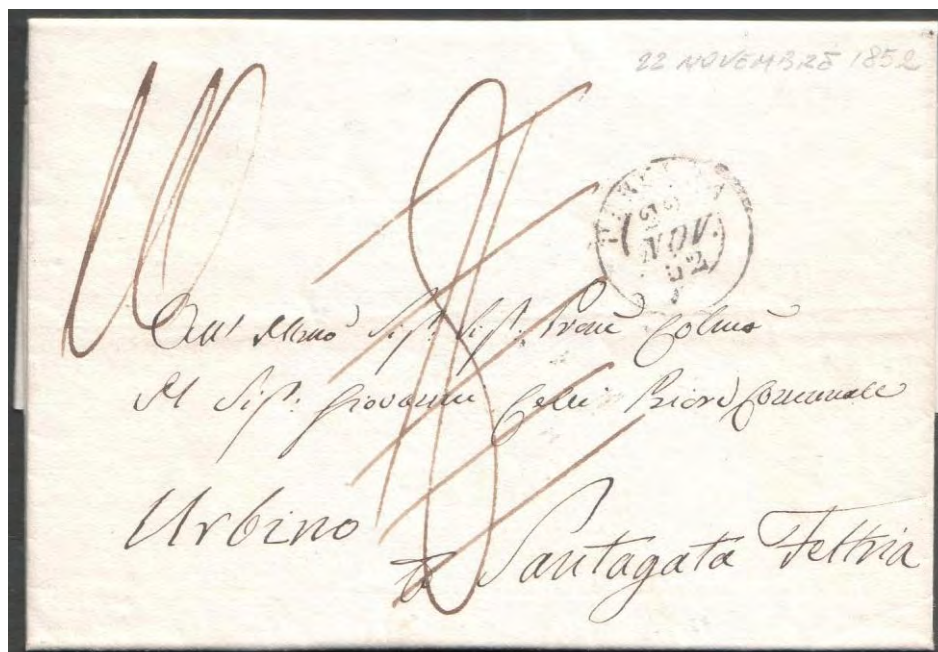 22 NOVEMBRE 1852
22
NOV.
52
All' Illmo Sig. Sig. Prone Colmo
Il Sig. Giovanni Celli Priore Comunale
Urbino
Santagata Feltria